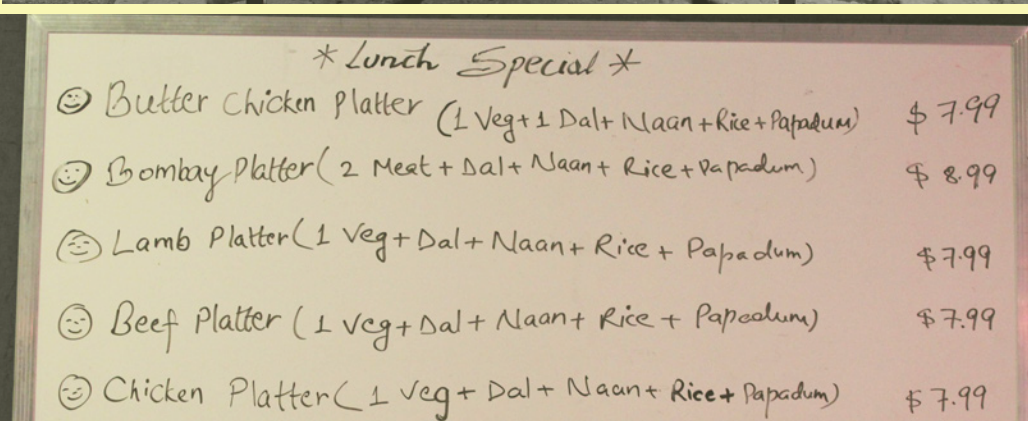 * Lunch Special *
Butter Chicken Platter (1 Veg + 1 Dal + Naan + Rice + Papadum) $ 7.99
Bombay Platter ( 2 Meat + Dal + Naan + Rice + Papadum ) $ 8.99
Lamb Platter ( 1 Veg + Dal + Naan + Rice + Papadum) $7.99
Beef Platter ( 1 Veg + Dal + Naan + Rice + Papadum) $7.99
Chicken Platter ( 1 Veg + Dal + Naan + Rice + Papadum) $7.99